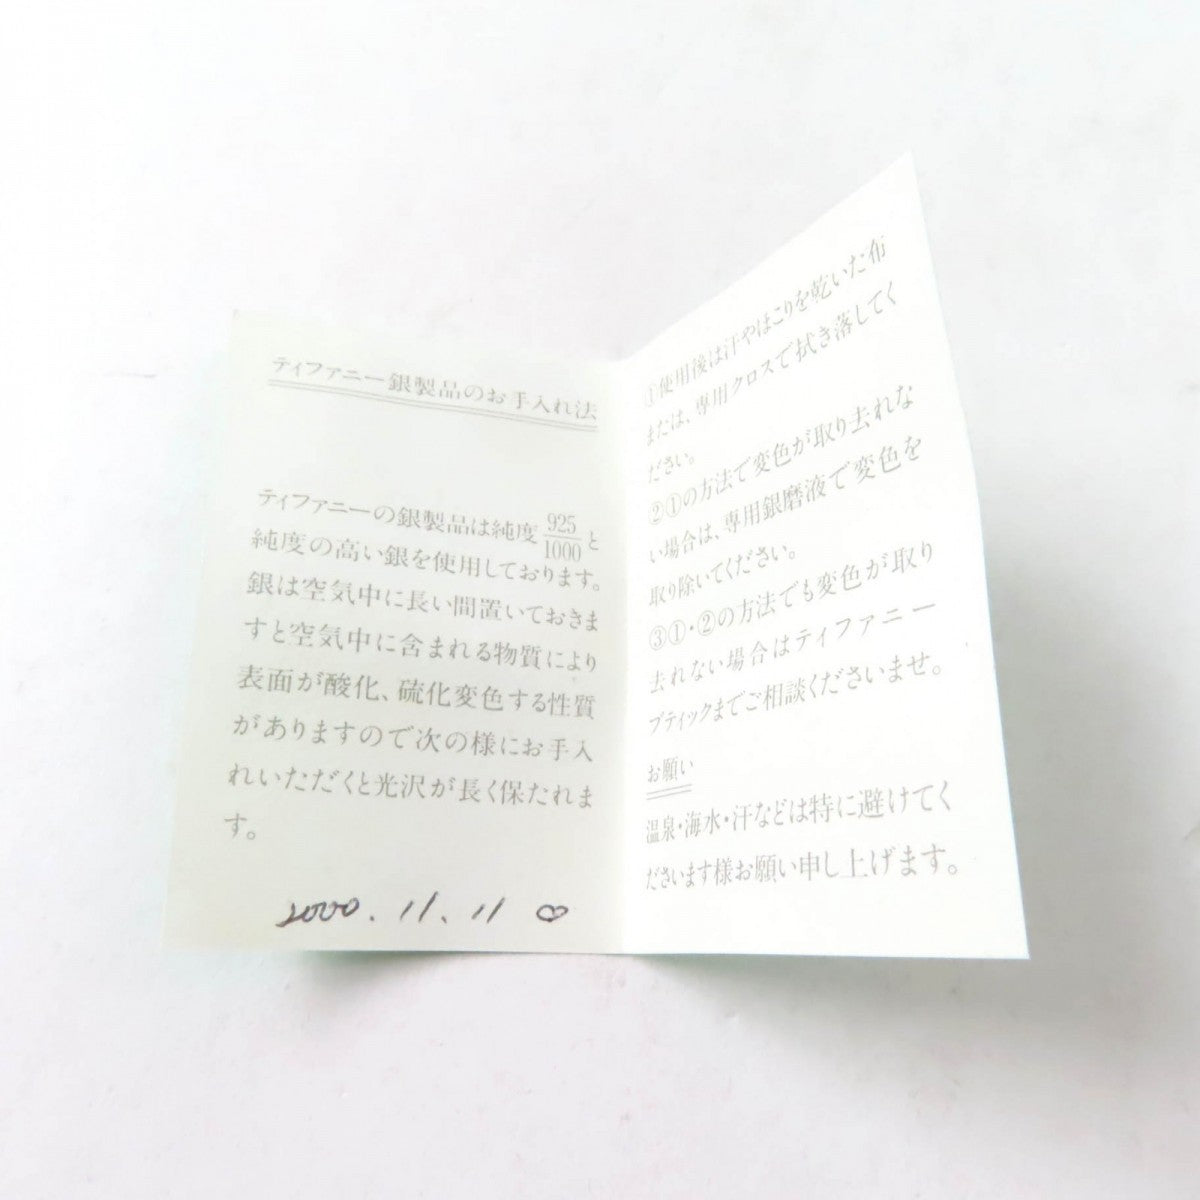 ティファニー銀製品のお手入れ法
ティファニーの銀製品は純度925/1000と
純度の高い銀を使用しております。
銀は空気中に長い間置いておきま
すと空気中に含まれる物質により
表面が酸化、硫化変色する性質
がありますので次の様にお手入
れいただくと光沢が長く保たれま
す。
2000.11.11 ♡
①使用後は汗やほこりを乾いた布
または、専用クロスで拭き落してく
ださい。
②①の方法で変色が取り去れな
い場合は、専用銀磨液で変色を
取り除いてください。
③①・②の方法でも変色が取り
去れない場合はティファニー
ブティックまでご相談くださいませ。
お願い
温泉・海水・汗などは特に避けてく
ださいます様お願い申し上げます。